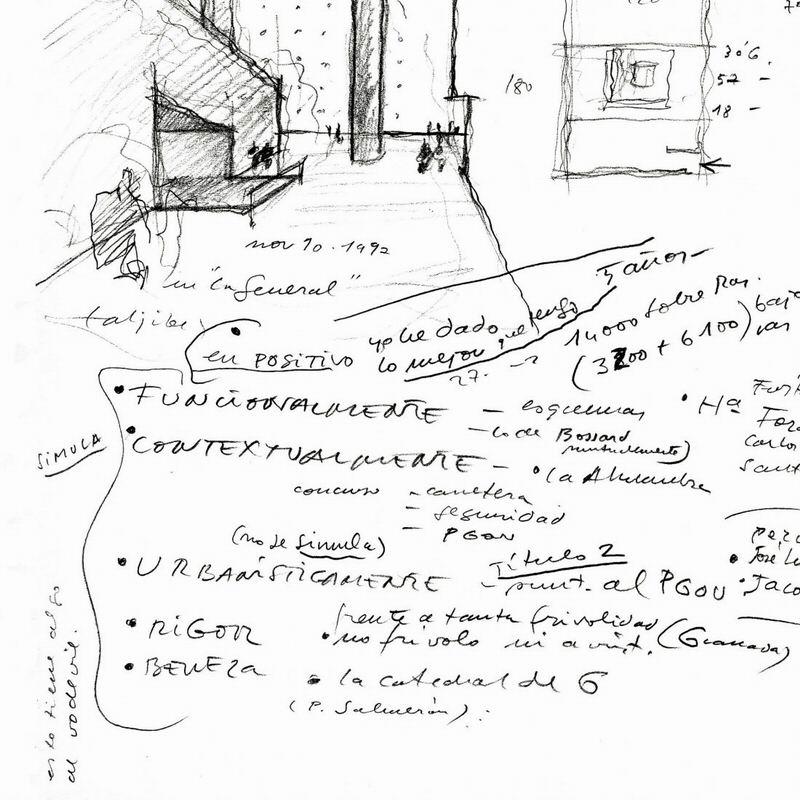 180
306
57 -
18 -
nov 20 · 1992
en "La General"
(aljibe)
5 años
14000 sobre ras.
(3200 + 6100) bajo
ras
yo he dado
lo mejor que tengo
27.
en POSITIVO
• FUNCIONALMENTE - esquemas
- lo de Bossard
• CONTEXTUALMENTE - • la Alhambra
SIMULA
concurso - carretera
- seguridad
- PGOU
• Hª
Carlos
(no se simula)
Título 2
• URBANÍSTICAMENTE - punt. al PGOU
• José Lu
• Jaco
• RIGOR
frente a tanta frivolidad
• no frívolo ni (Granada)
• BELLEZA
• la catedral de G
(P. Salmerón)
esto tiene algo
al vodevil.